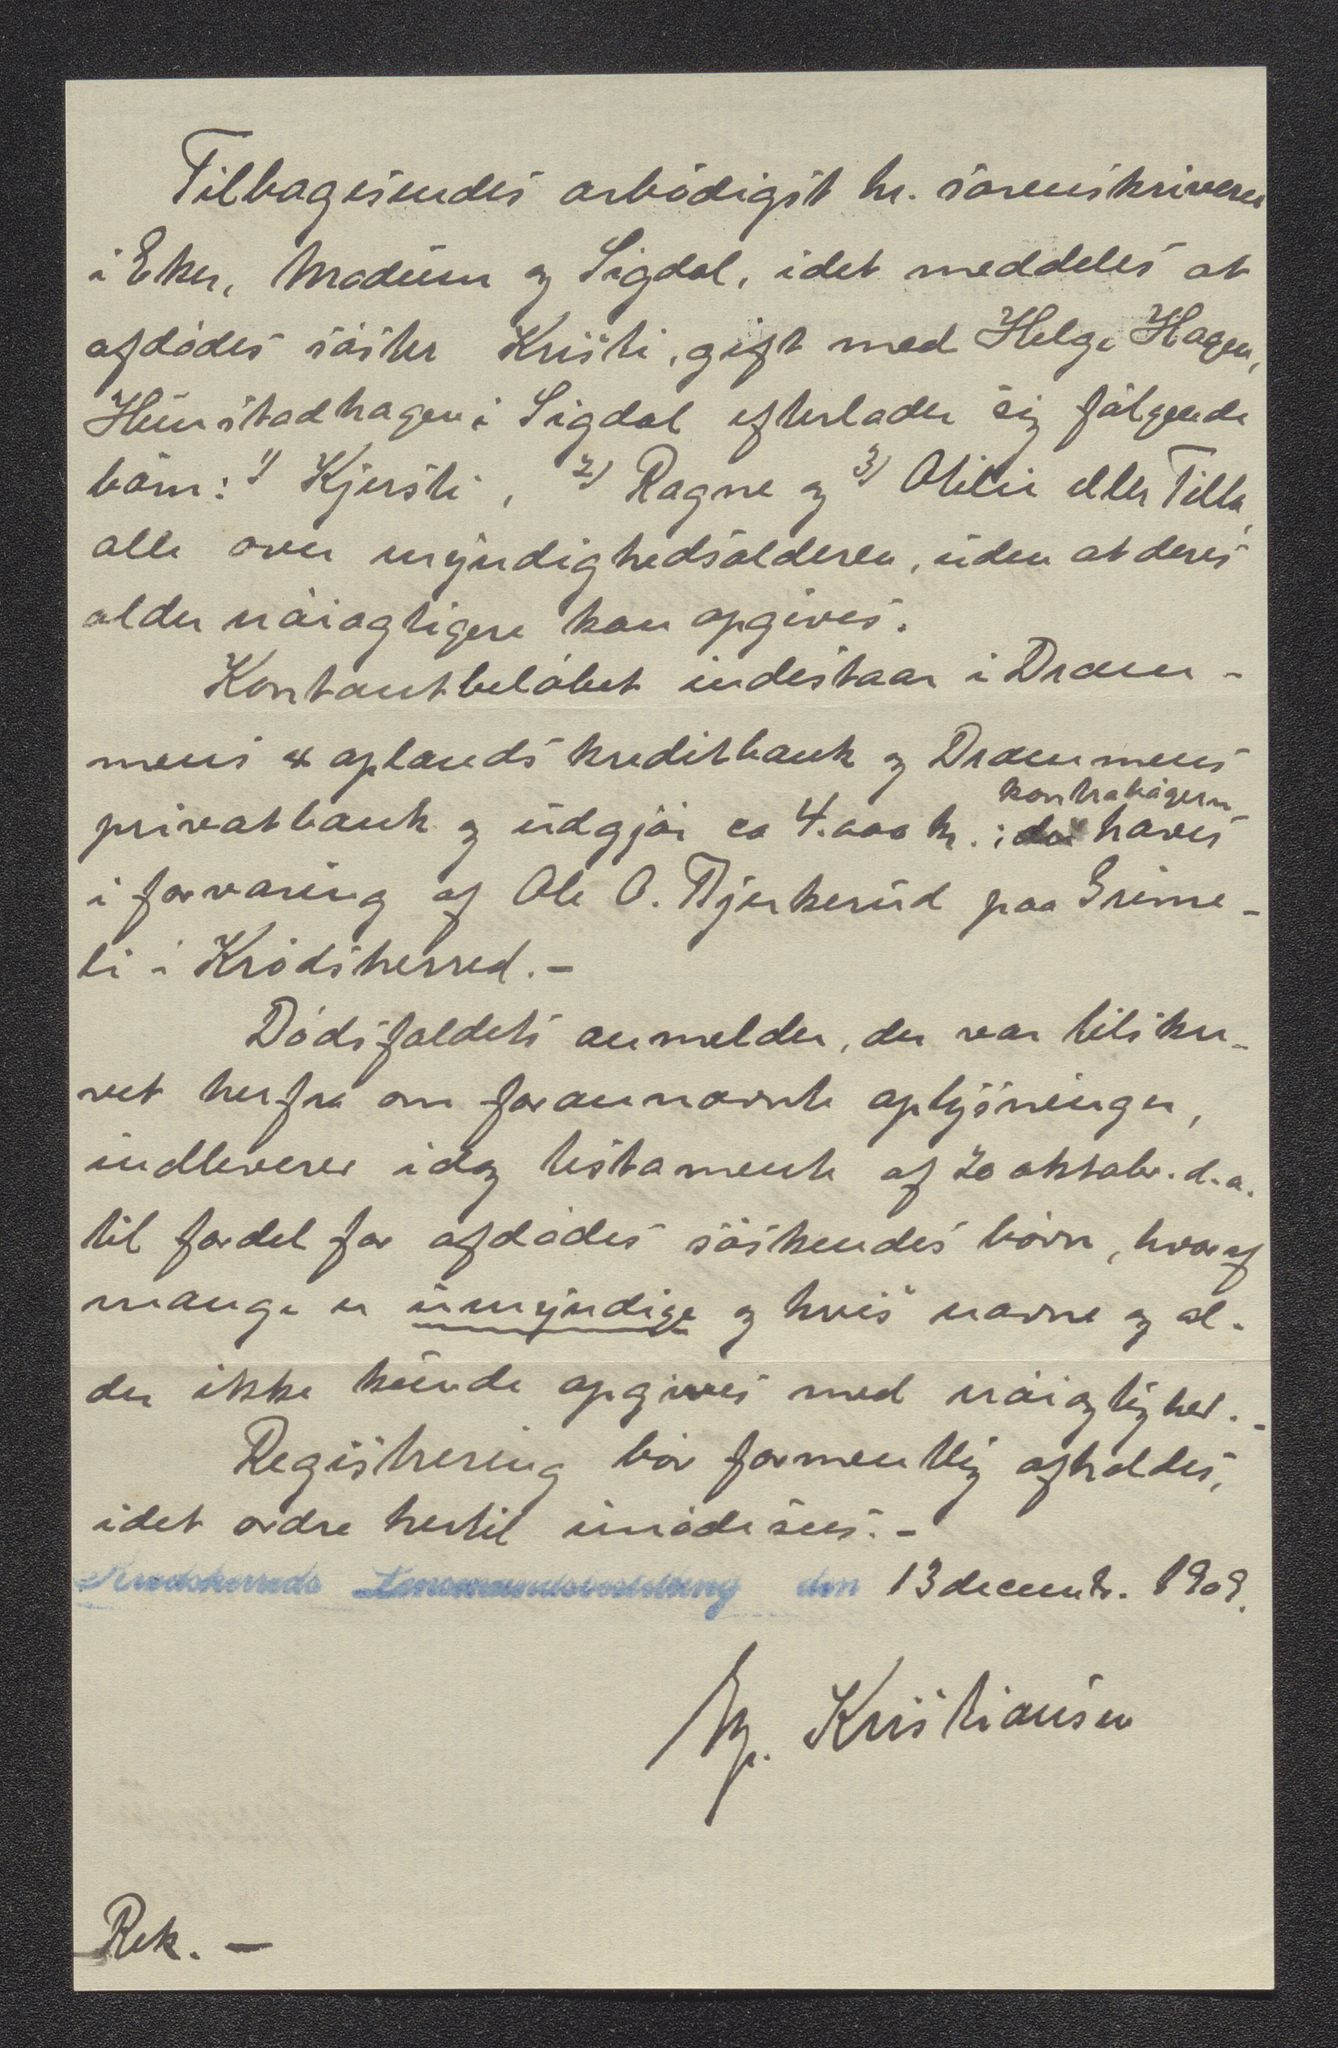 Tilbagesendes ærbødigst hr. sorenskriveren
i Eker, Modum og Sigdal, idet meddeles at
afdødes søster Kristi, gift med Helge Hagen,
Hunstadhagen i Sigdal efterlader sig følgende
børn: 1) Kjersti, 2) Ragne og 3) Otilie eller Tilla,
alle over myndighedsalderen, uden at deres
alder nøiagtigere kan opgives.
Kontantbeløbet indestaar i Dram-
mens & oplands kreditbank og Drammens
privatbank og udgjør ca 4.000 kr.; kontrabøgerne haves
i forvaring af Ole O. Bjerkerud paa Grime-
li i Krødsherred.-
Dødsfaldets anmelder, der var tilskre-
vet herfra om forannævnte oplysninger,
indleverer idag testamente af 20 oktobr. d.a.
til fordel for afdødes søskendes børn, hvoraf
mange er umyndige og hvis navne og al-
der ikke kunde opgives med nøiagtighed.-
Registrering bør formentlig afholdes,
idet ordre hertil imødesees.-
Krødsherreds Lensmandsbestilling den 13 decembr. 1909.
Kristiansen
Rek. -